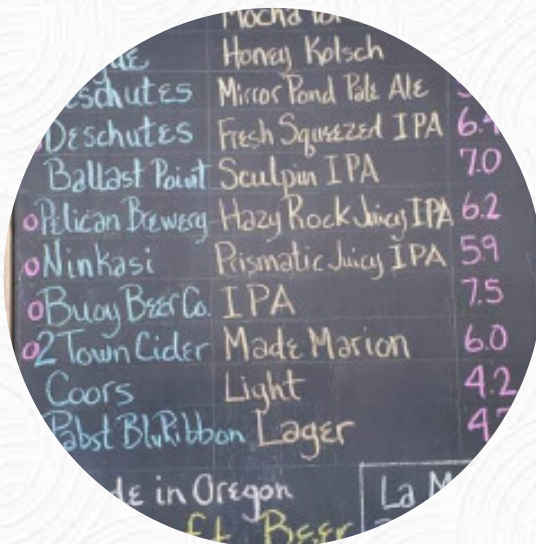 Mocha
Honey Kolsch
Mirror Pond Pale Ale
Deschutes Fresh Squeezed IPA 6.4
Ballast Point Sculpin IPA 7.0
Pelican Brewery Hazy Rock Juicy IPA 6.2
Ninkasi Prismatic Juicy IPA 59
Buoy Beer Co. IPA 7.5
2 Town Cider Made Marion 6.0
Coors Light 4.2
Pabst Blu Ribbon Lager
in Oregon
La
Beer